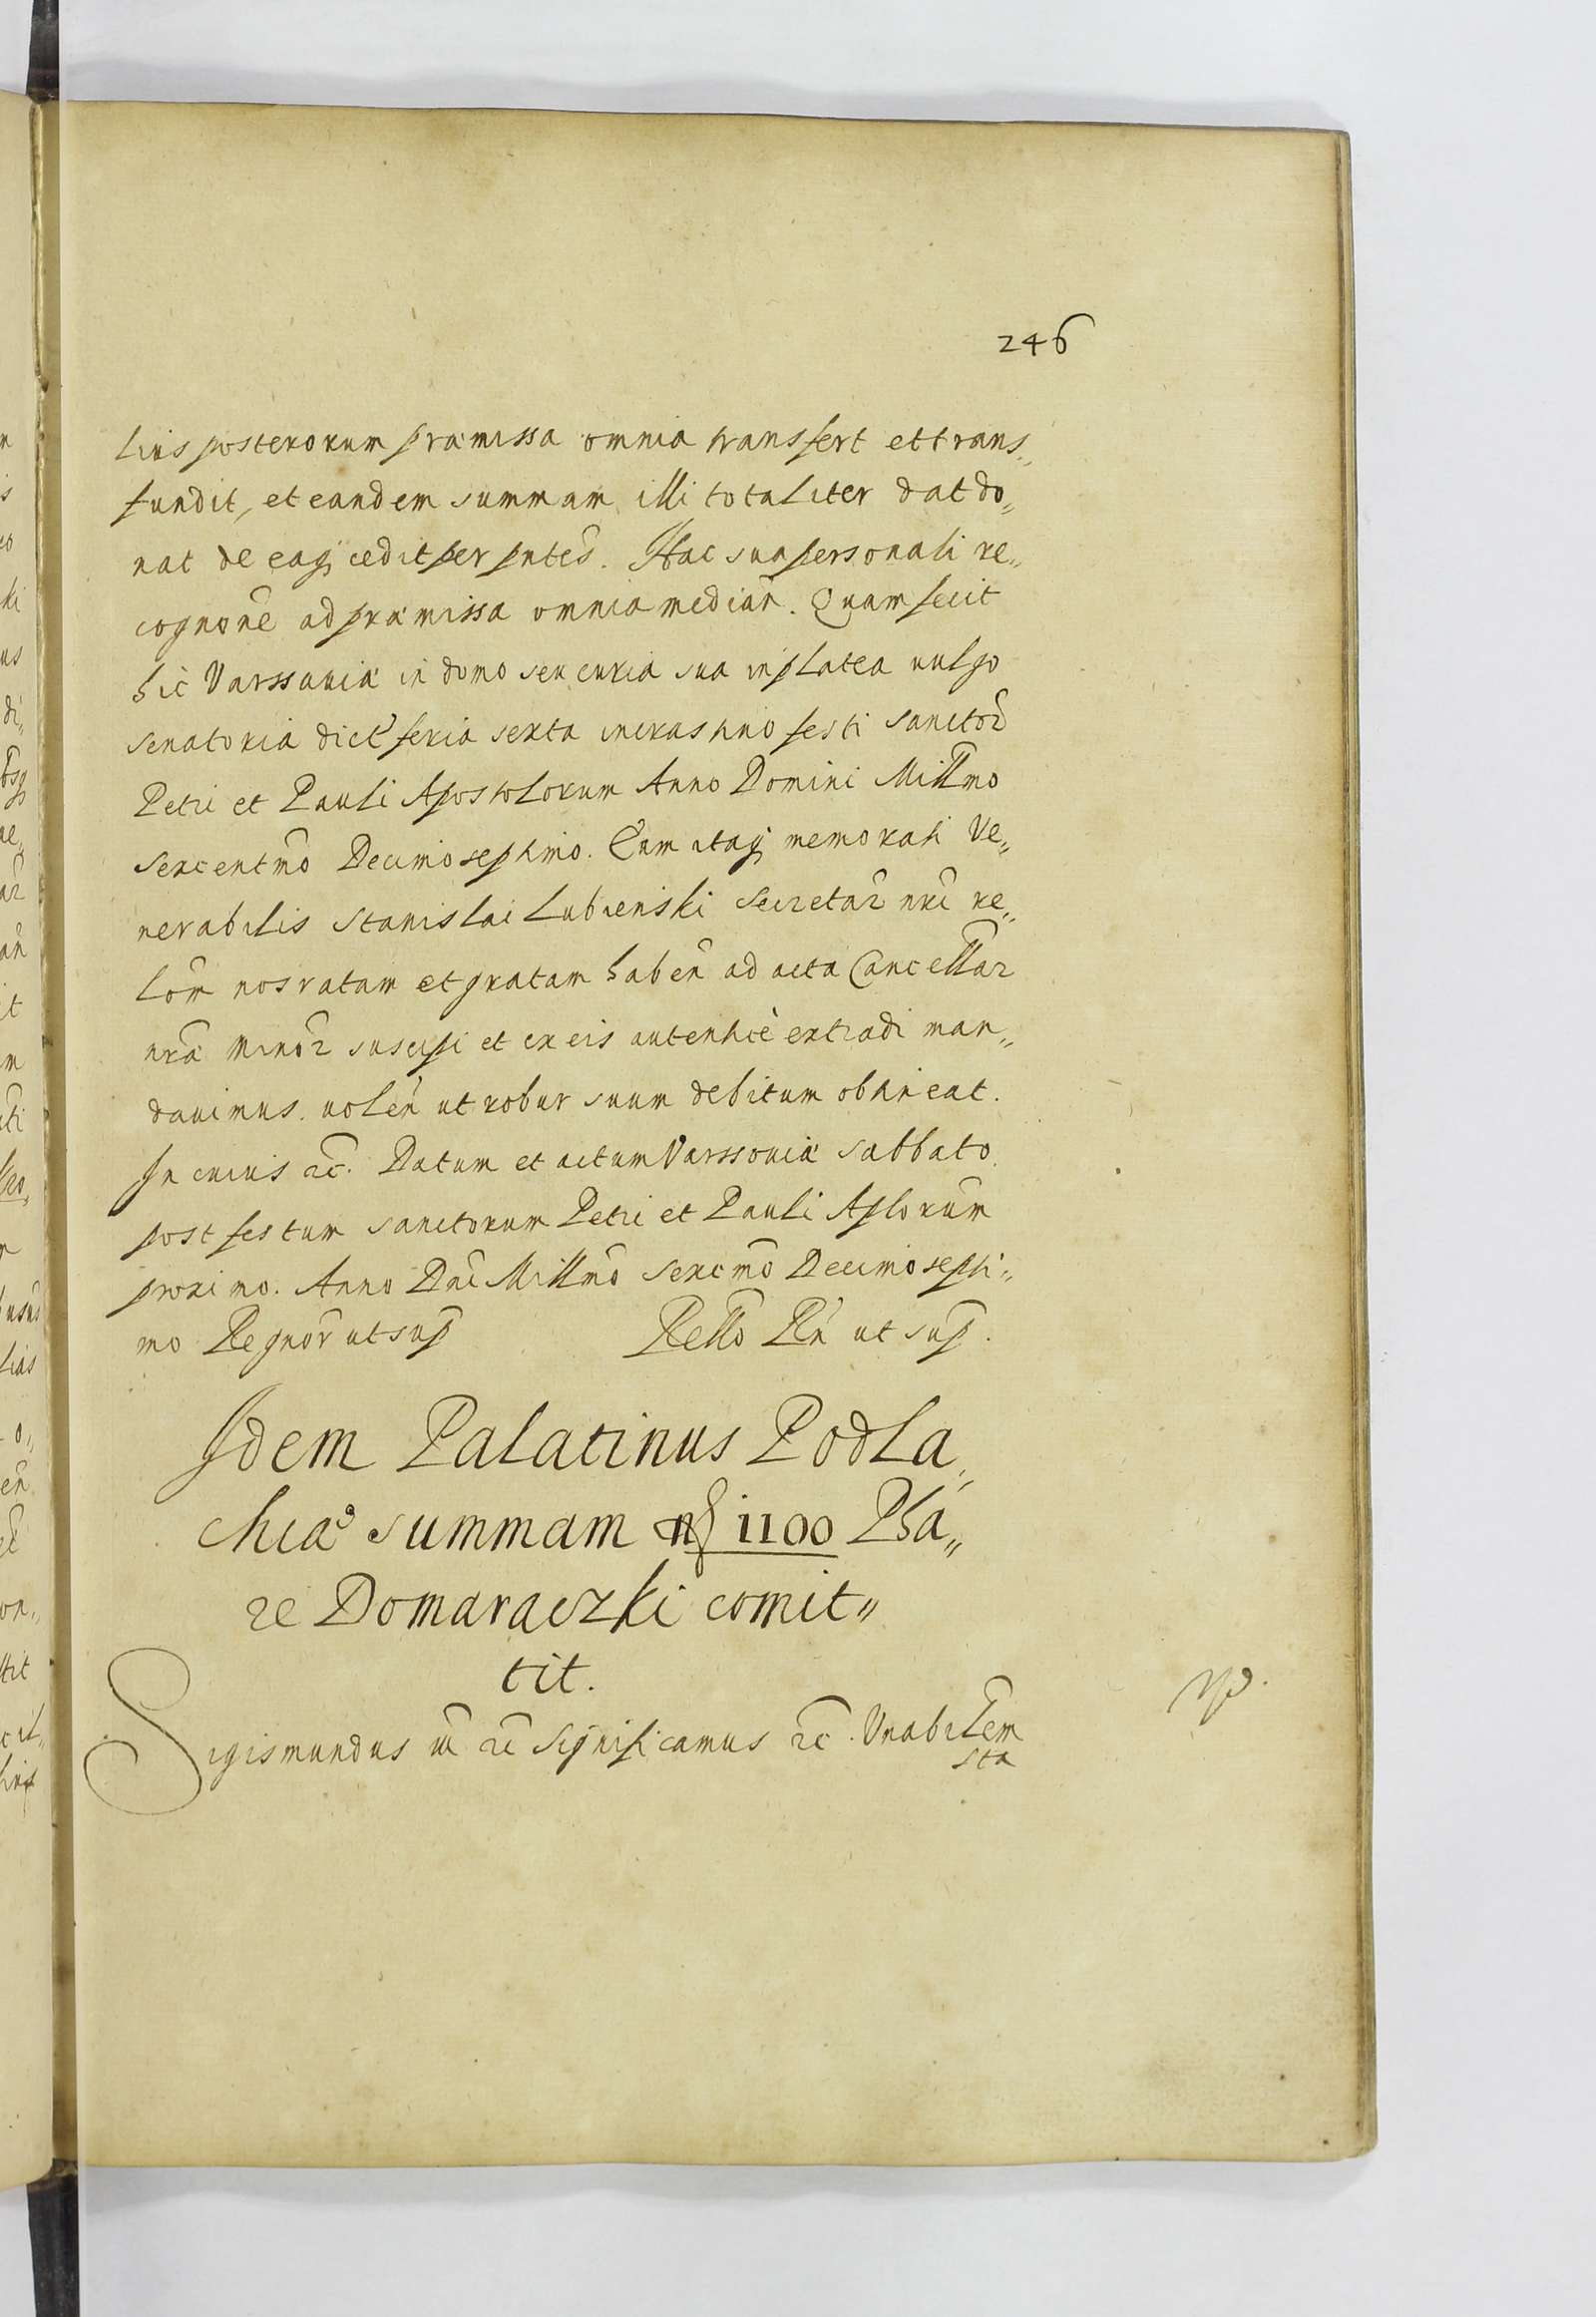 246
lius posterorum præmissa omnia transfert et trans„
fundit, et eandem summam illi totaliter dat do„
nat de eaq cedit per pntes. Hac sua personali re„
cognone ad præmissa omnia median. Quam fecit
hic Varssaviæ in domo seu curia sua in platea vulgo
senatoria dict feria sexta in crastino festi sanctor
Petri et Pauli Apostolorum Anno Domini Millmo
sexcentmo Decimoseptimo. Eam itaq memorati Ve„
nerabilis Stanislai Lubienski Secretar nri re„
lom nos ratam et gratam haben ad acta Cancellar
nræ minor suscipi et ex eis autentice extradi man„
davimus. volen ut robur suum debitum obtineat.
In cuius rc. Datum et actum Varssoviæ Sabbato
post festum sanctorum Petri et Pauli Aplorum
proximo. Anno Dni Millmo sexcmo Decimosepti„
mo Regnor ut sup Rello Rn ut sup.
Idem Palatinus Podla„
chiæ summam 1100 Pha„
re Domaraczki comit„
tit.
Sigismundus rc Significamus rc. Vnabilem
Sta